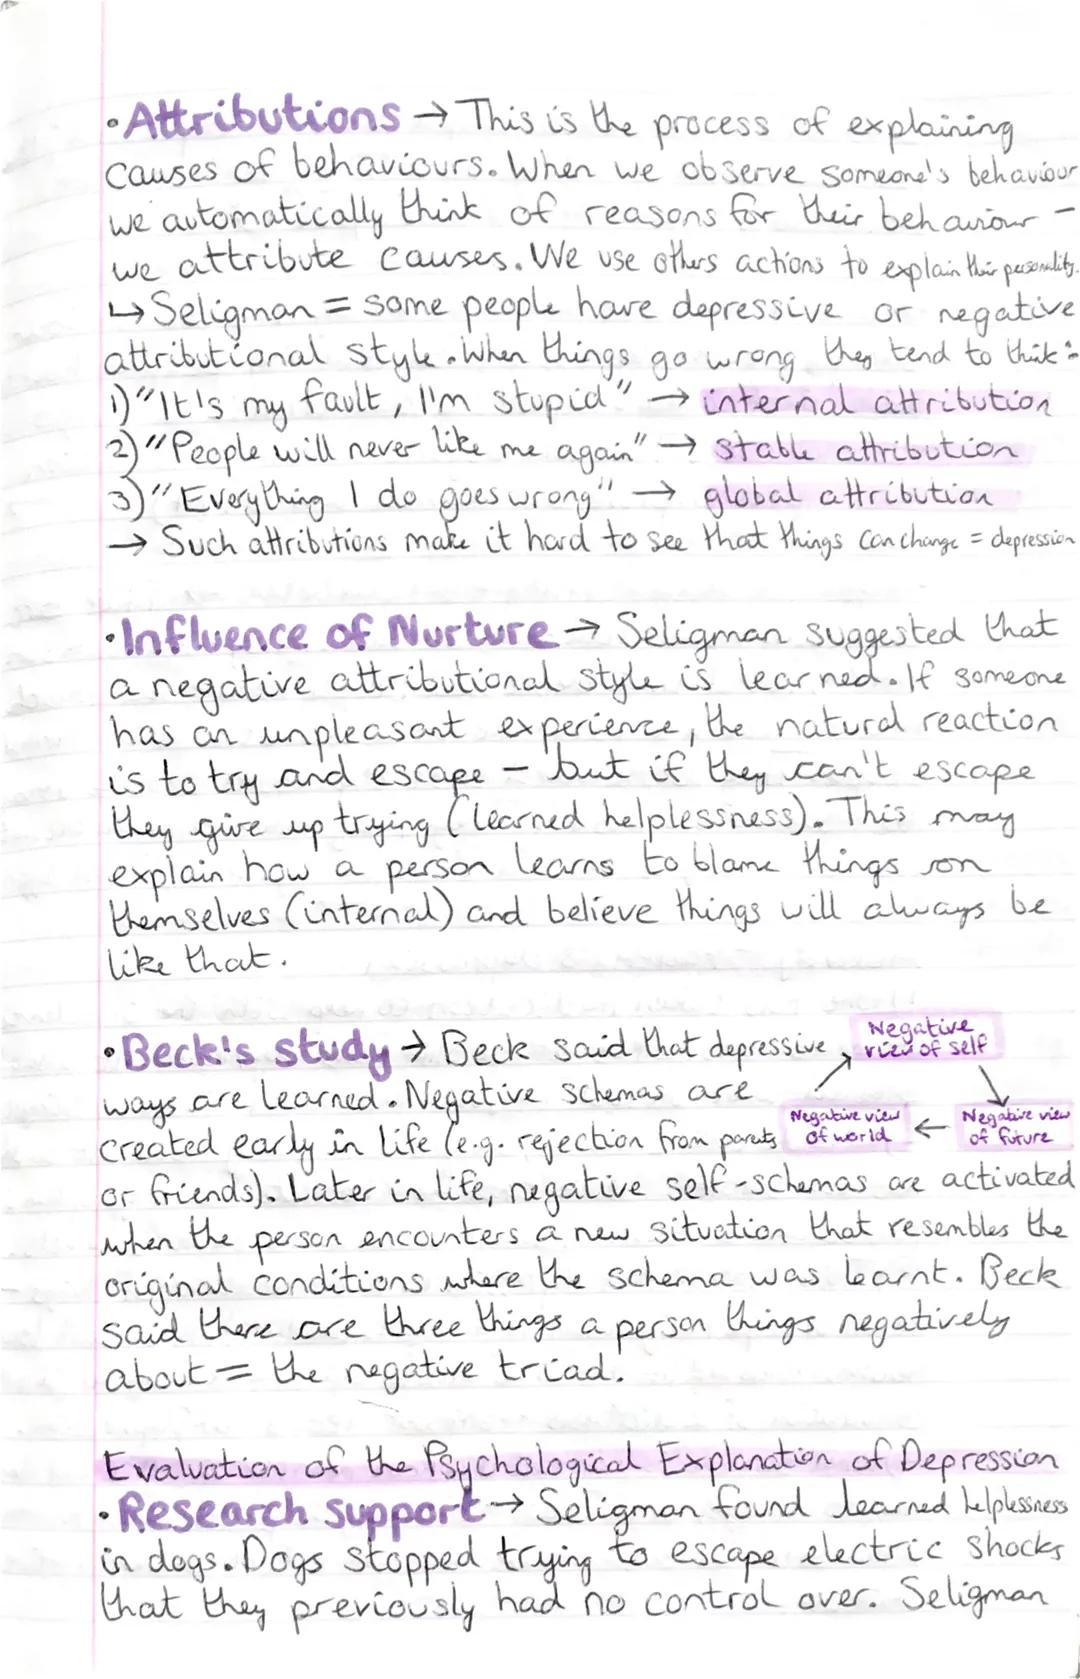 • Attributions → This is the process of explaining
causes of behaviours. When we observe someone's behaviour
we automatically think of reasons for their behaviour -
we attribute causes. We use others actions to explain their personality.
↳ Seligman = some people have depressive or negative
attributional style. When things go wrong they tend to think:-
1) "It's my fault, I'm stupid" → internal attribution
2) "People will never like me again" → stable attribution
3) "Everything I do goes wrong" → global attribution
→ Such attributions make it hard to see that things can change = depression
• Influence of Nurture → Seligman suggested that
a negative attributional style is learned. If someone
has an unpleasant experience, the natural reaction
is to try and escape - but if they can't escape
they give up trying (learned helplessness). This may
explain how a person learns to blame things on
themselves (internal) and believe things will always be
like that.
• Beck's study → Beck said that depressive
ways are learned. Negative schemas are
created early in life (e.g. rejection from parents
or friends). Later in life, negative self-schemas are activated
when the person encounters a new situation that resembles the
original conditions where the schema was learnt. Beck
said there are three things a person things negatively
about = the negative triad.
Negative
view of self
Negative view
of future
Negative view
of world
Evaluation of the Psychological Explanation of Depression
• Research support → Seligman found learned helplessness
in dogs. Dogs stopped trying to escape electric shocks
that they previously had no control over. Seligman